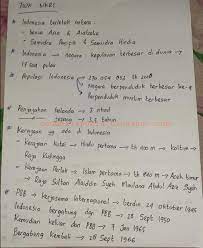 * Indonesia terletak antara :
- benua Asia & Australia
- Samudra Pasifik & Samudra Hindia
* Indonesia → negara kepulauan terbesar di dunia →
17 ribu pulau
* Populasi Indonesia → 270 054 853 th 2018
Negara berpenduduk terbesar ke-4
Berpenduduk muslim terbesar
* Penjajahan Belanda → 3 abad
Jepang → 3,5 tahun
* Kerajaan yg ada di Indonesia
Kerajaan Hindu pertama → th 400 m → Kaltim →
Raja Kudungga
Kerajaan Islam pertama → th 840 m → Aceh Timur
→ Raja Sultan Alaiddin Syeh Maulana Abdul Aziz Syah
* PBB → kerjasama Internasional → berdiri 24 oktober 1945
Indonesia bergabung dgn PBB → 28 Sept 1950
Kemudian keluar dari PBB → 7 Jan 1965
Bergabung kembali → 28 Sept 1966